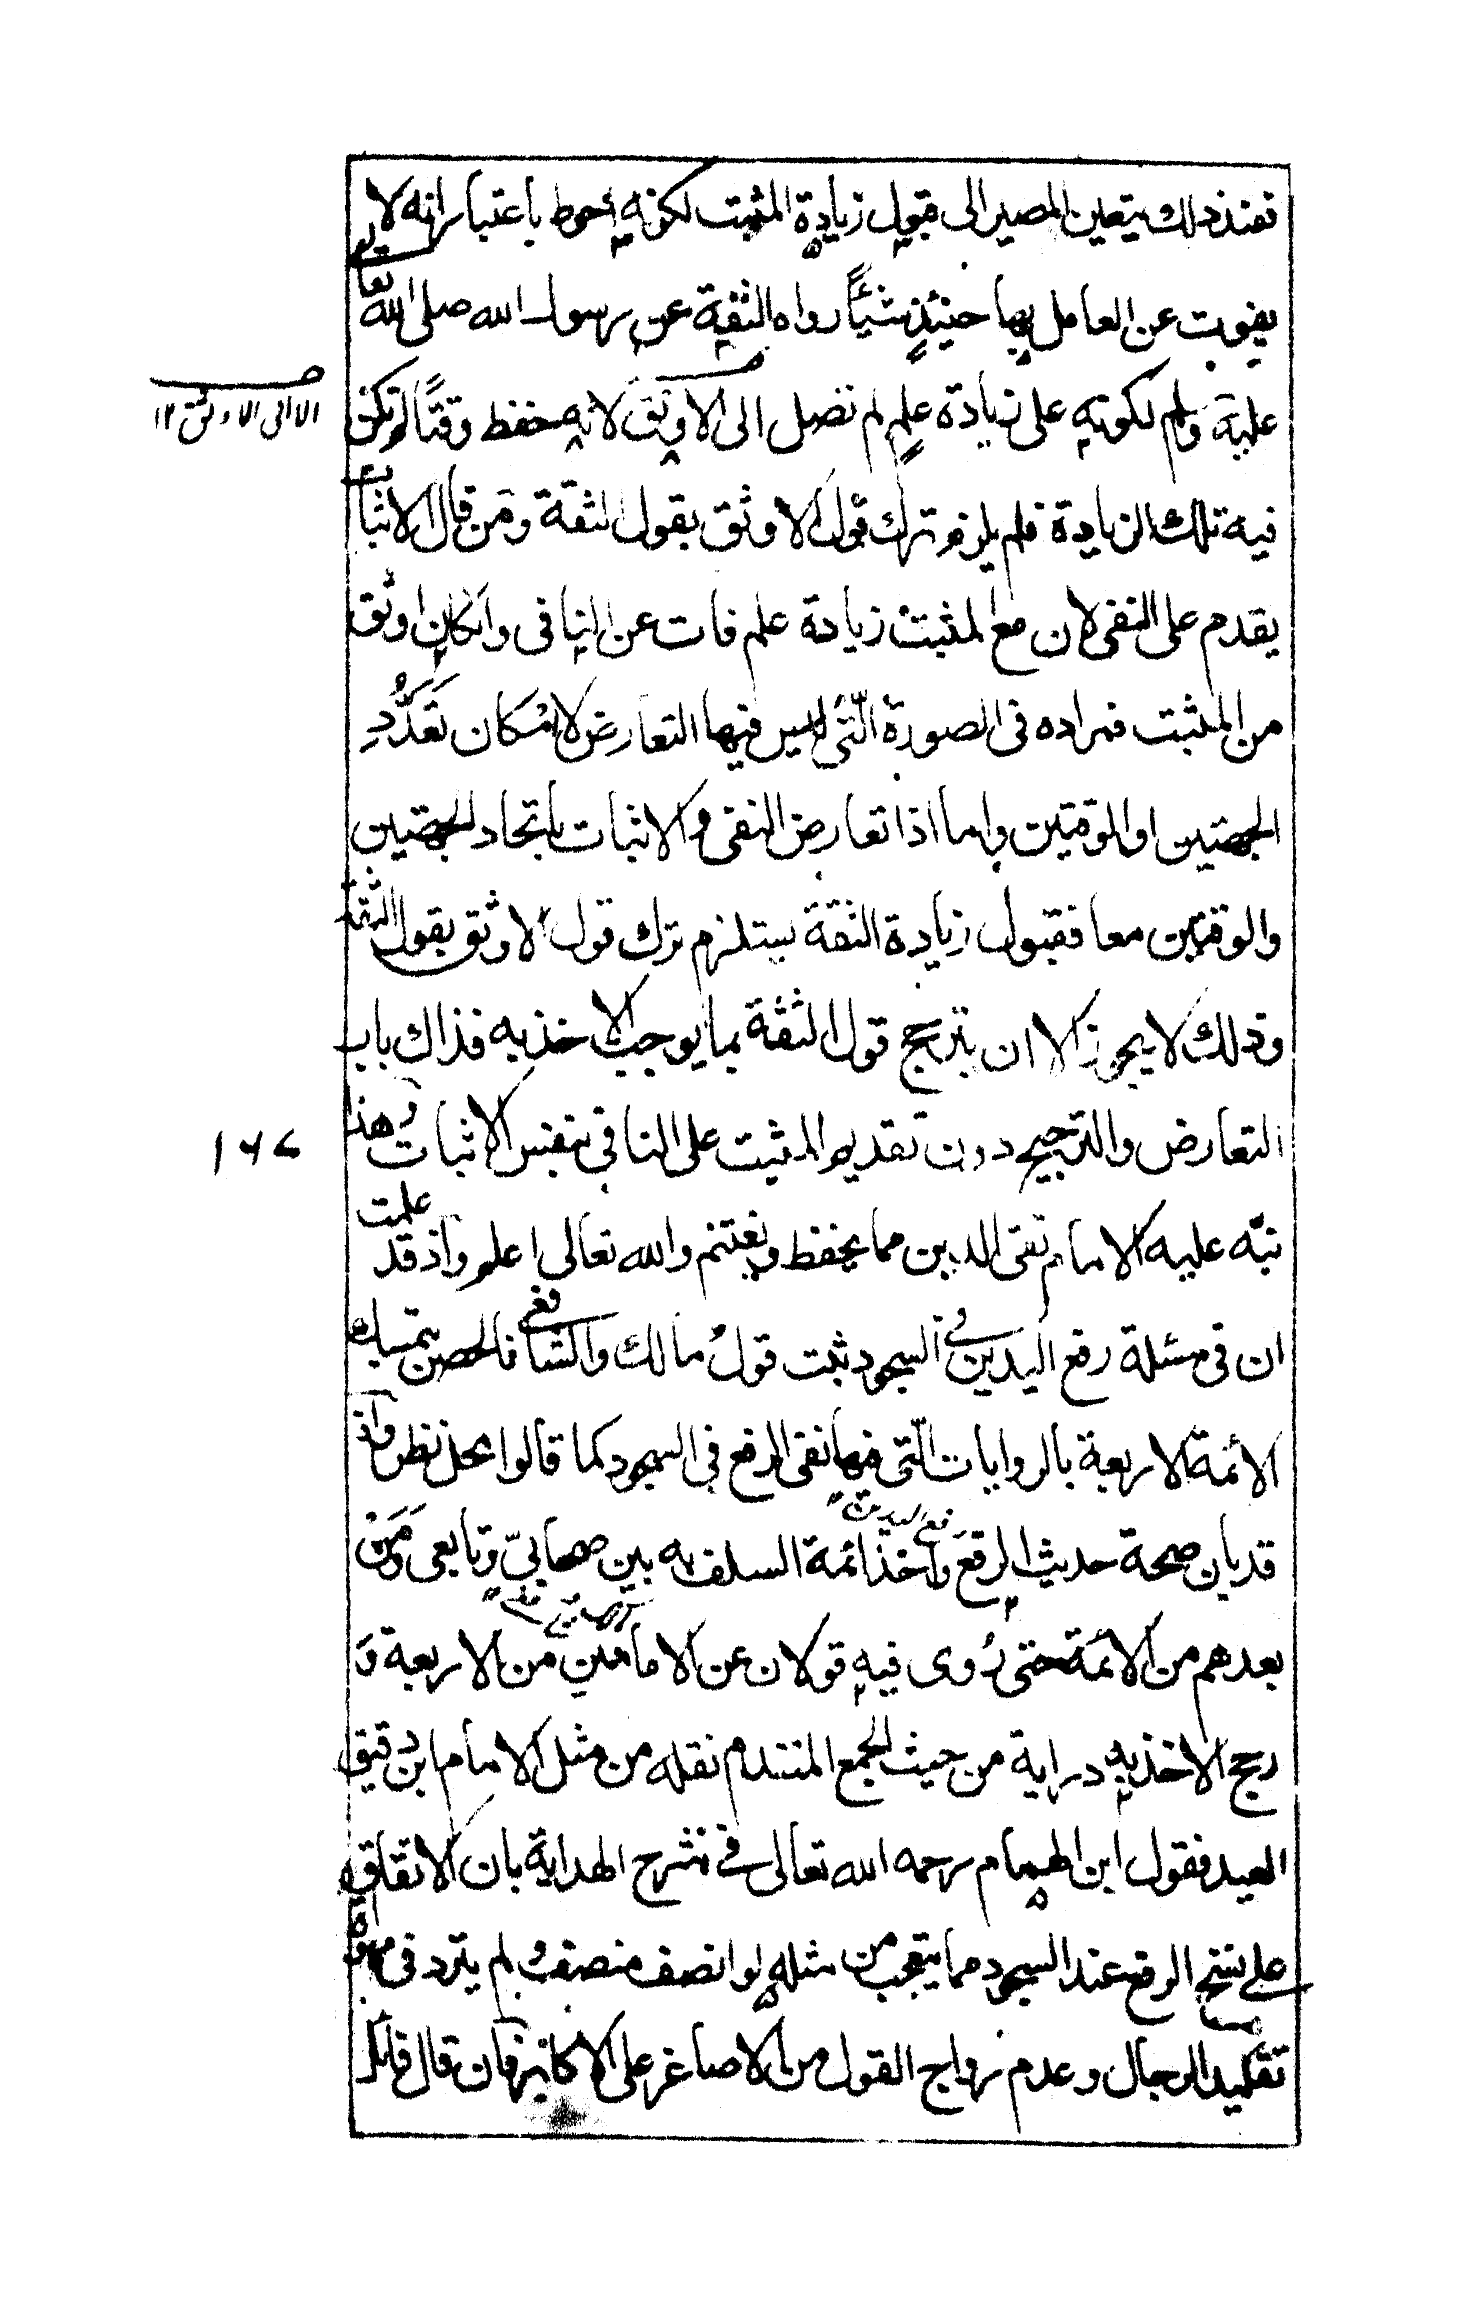 فعند ذلك يتعين المصير الى قبول زيادة المثبت لكونه احوط باعتبار انه لا
يفوت عن العامل بها حينئذٍ شيئًا رواه الثقة عن رسول الله صلى الله تعا
عليه وسلم لكونه على زيادة علمٍ لم تصل الى الاوثق لانه حفظ وقتًا لم تكن
الا الى الاوثق ١٢
فيه تلك الزيادة فلم يلزم ترك قول الاوثق بقول الثقة ومن قال الاثبات
يقدم على النفى لان مع المثبت زيادة علم فات عن النافى وان كان اوثق
من المثبت فمراده فى الصورة الّتى ليس فيها التعارض لامْكان تَعَدُّدِ
الجهتين او الوقتين واما اذا تعارض النفى والاثبات باتحاد الجهتين
والوقتين معا فقبول زيادة الثقة يستلزم ترك قول الاوثق بقول الثقة
وذلك لا يجوز الا ان يترجح قول الثقة بما يوجب الاخذ به فذاك باب
التعارض والترجيح دون تقديم المثبت على النافى بنفس الاثبات وهذا
١٦٧
نبّه عليه الامام تقى الدين مما يحفظ ويغتنم والله تعالى اعلم واذ قد علمت
ان فى مسئلة رفع اليدين فى السجود ثبت قول مالك والشافعى فالحصر بتمسك
الائمة الاربعة بالروايات الّتى فيها نفى الرفع فى السجود كما قالوا محل نظر واذ
قد بان صحة حديث الرفع واخذ ائمة السلف به بين صحابىّ وتابعى ومَنْ
بعدهم من الائمة حتى رُوى فيه قولان عن الامامين من الاربعة وَ
رجح الاخذ به دراية من حيث الجمع المتقدم نقله من مثل الامام ابن دقيق
العيد فقول ابن الهمام رحمه الله تعالى فى شرح الهداية بان الاتفاق
على نسخ الرفع عند السجود مما يتعجب من مثله لو انصف منصف ولم يتردّ فى
تقليد الرجال وعدم رواج القول من الاصاغر على الاكابر فان قال قائل